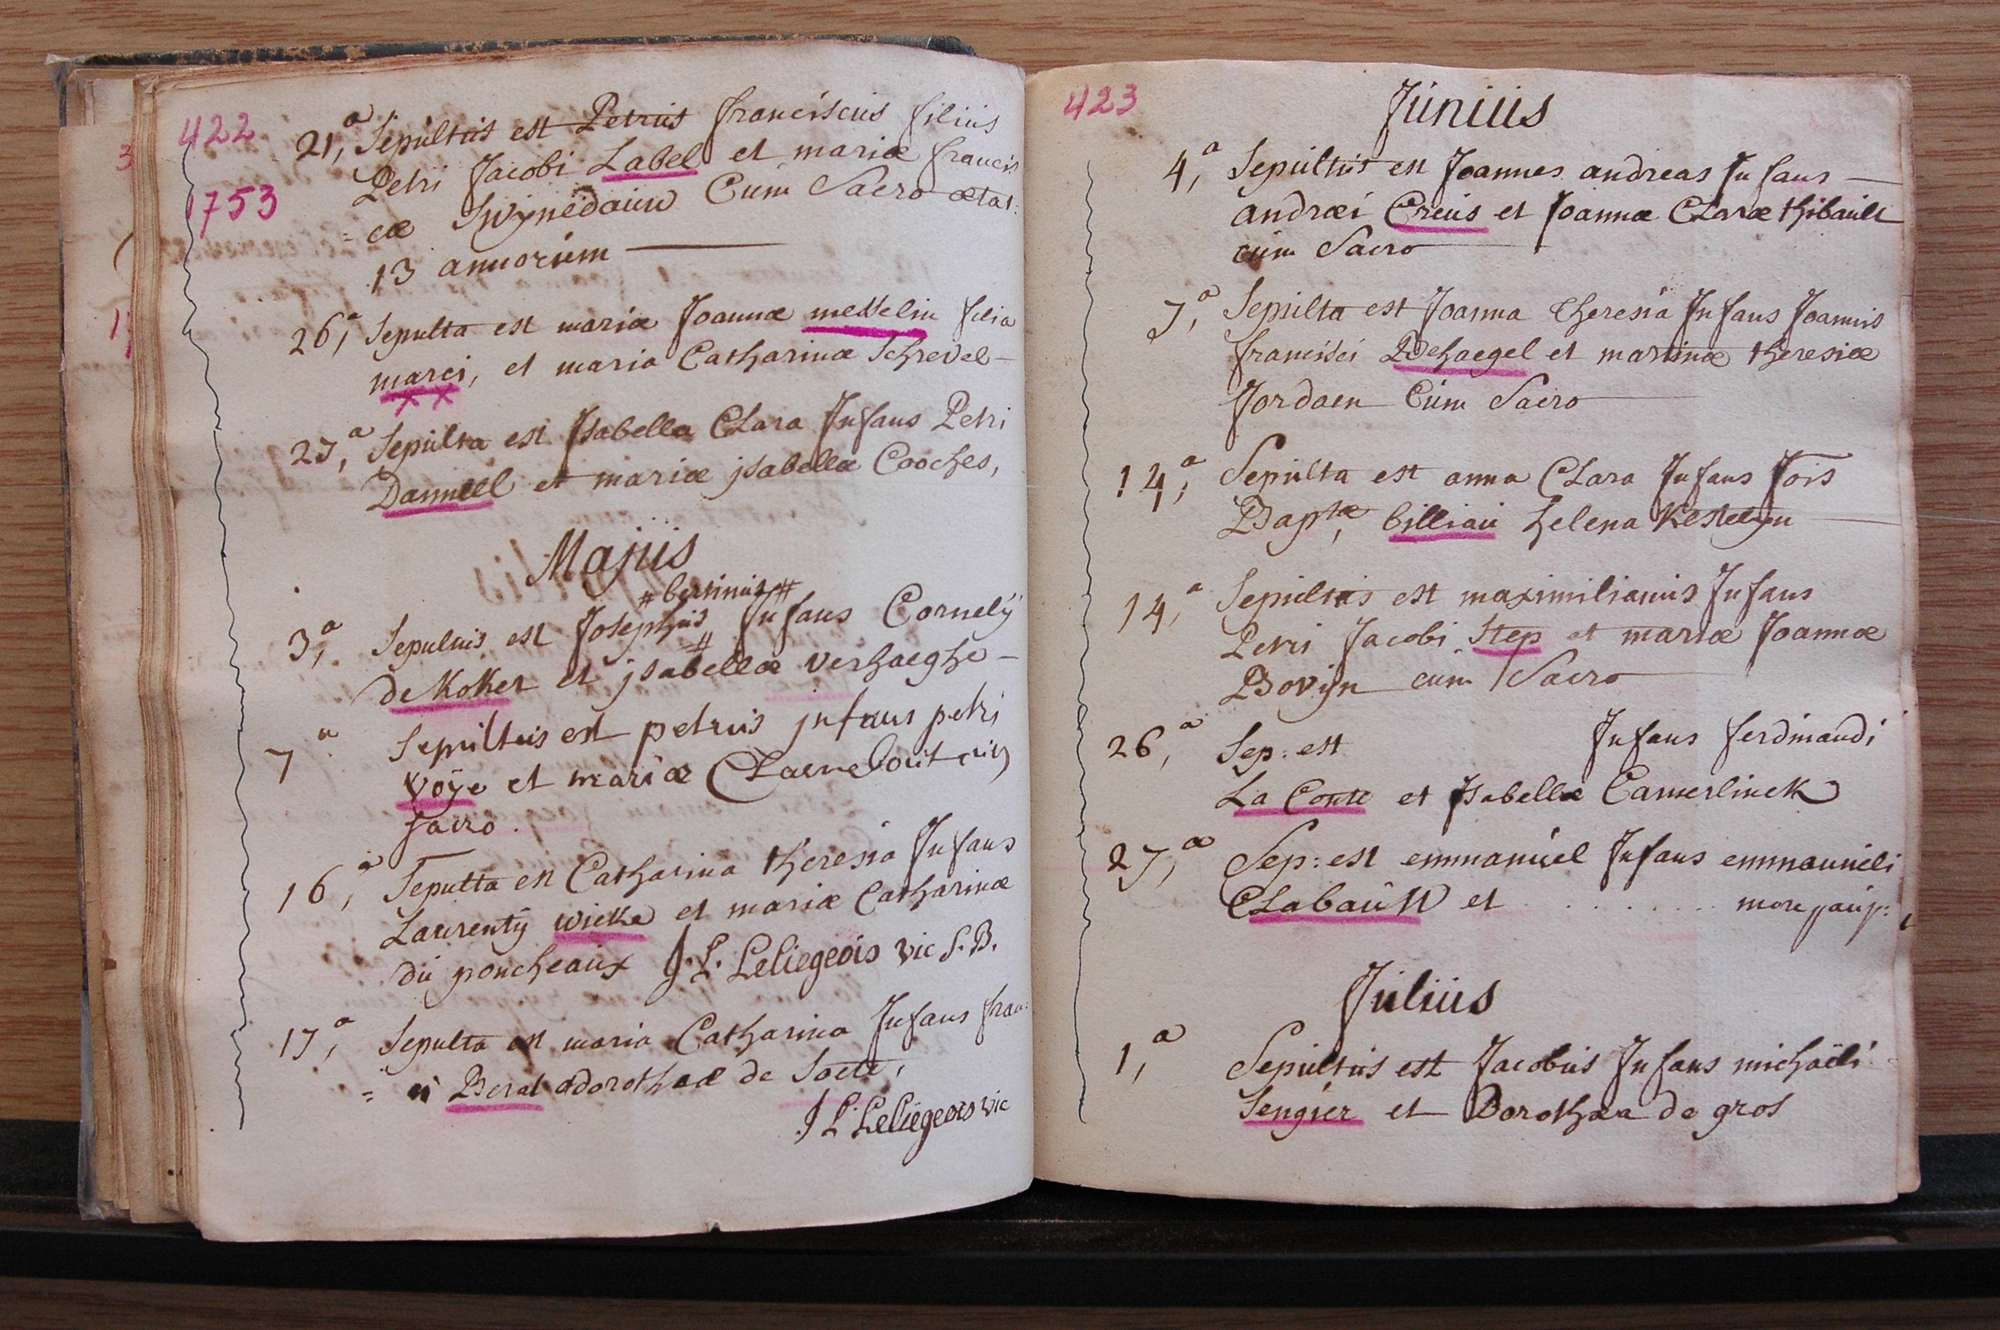 422
1753
21,a Sepultus est Petrus franciscus filius
Petri Jacobi Label et mariæ francis
= cæ Swynedauw Cum Sacro ætat:
13 annorum
26,a Sepulta est mariæ Joannæ messelin filia
marci, et maria Catharinæ Schrevel-
27,a Sepulta est Isabella Clara Infans Petri
Danneel et mariæ jsabellæ Cooches,
Majus
# bertinus #
3,a Sepultus est Josephus # Infans Cornelÿ
de Koker et jsabellæ verhaeghe -
7a Sepultus est petrus jnfans petri
voÿe et mariæ Claereboút cúm
sacro.
16,a Sepulta est Catharina theresia Infans
Laurentÿ wicke et mariæ Catharinæ
dú poncheaux J. L. Leliegeois vic S. B.
17,a Sepulta est maria Catharina Infans fran:
= ci Berat dorotheæ de Soete,
J L Leliegeois vic
423
Június
4,a Sepultus est Joannes andreas Infans
andræi Creus et Joannæ Claræ thibault
cúm Sacro
7,a Sepulta est Joanna theresia Infans Joannis
francisci Dehaegel et martinæ theresiæ
Jordaen Cúm Sacro
14,a Sepulta est anna Clara Infans Jois
Baptæ, billiau helena Kestelyn
14,a Sepultus est maximilianus Infans
Petri Jacobi Step et mariæ Joannæ
Bovÿn cum Sacro
26,a Sep: est Infans ferdinandi
La Conte et Isabellæ Camerlinck
27,a Sep: est emmanúel Infans emmanúeli
Clabaút et . . . . . . . . more paup:
Július
1,a Sepultus est Jacobus Infans michaëli
Sengier et Dorothea de gros